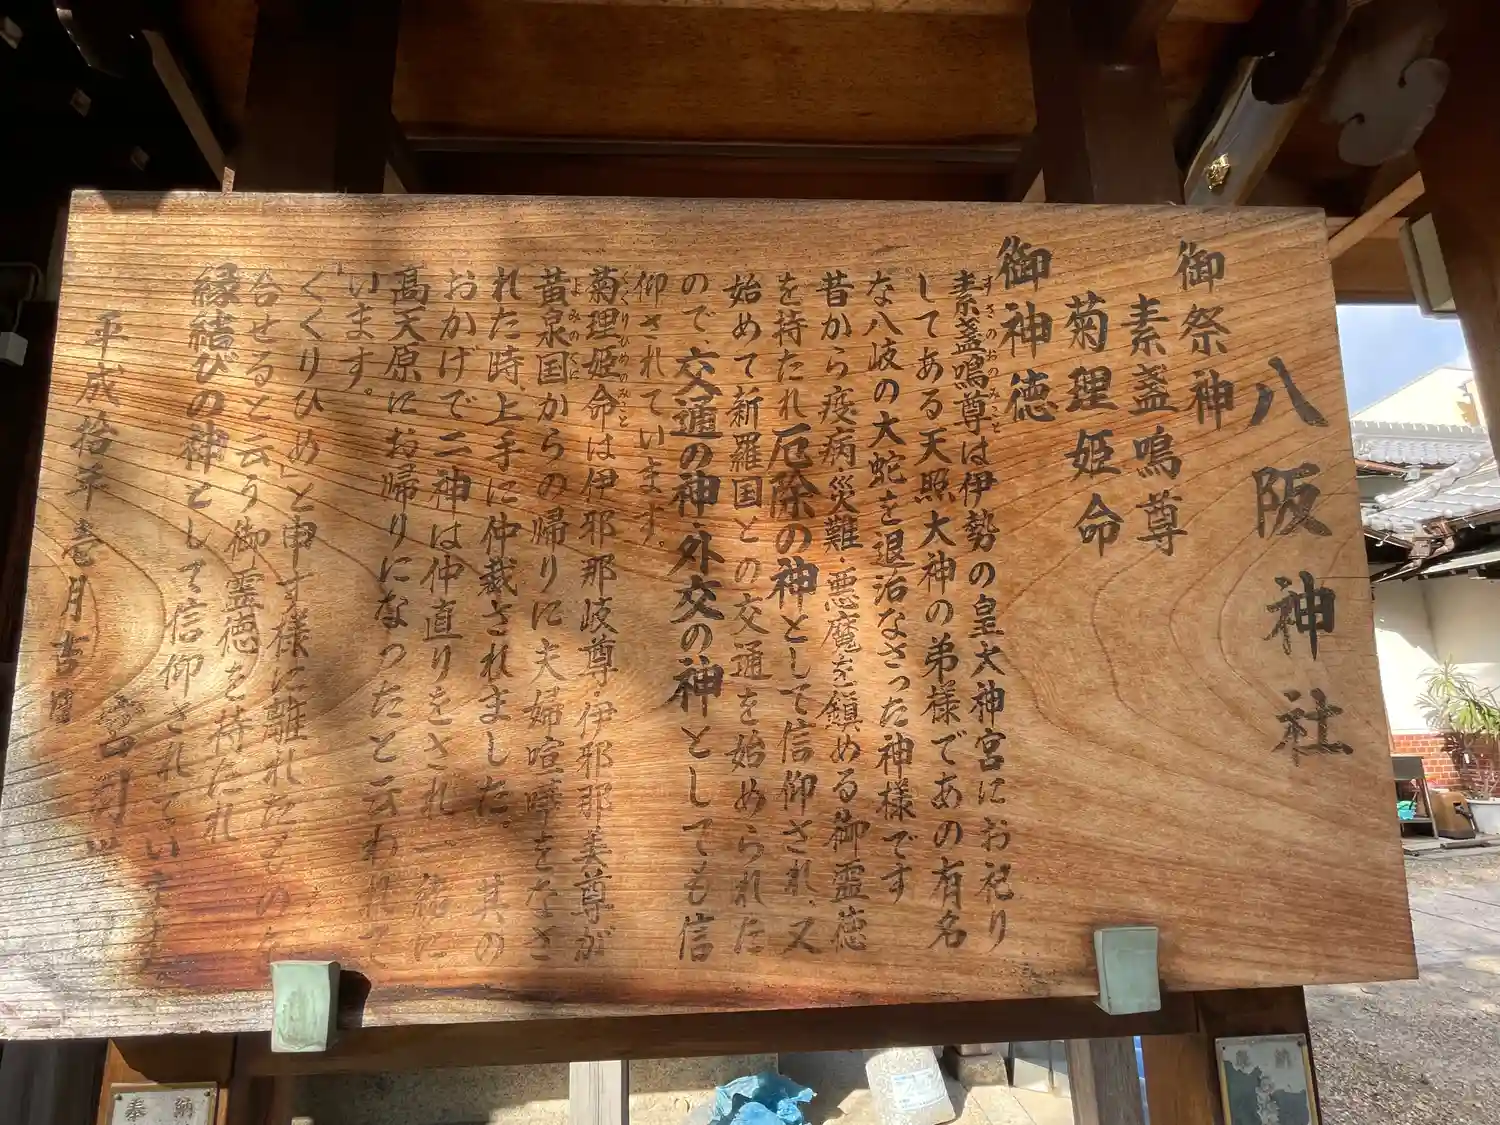 八阪神社
御祭神
素盞鳴尊
菊理姫命
御神徳
素盞鳴尊は伊勢の皇大神宮にお祀り
すさのおのみこと
してある天照大神の弟様であの有名
な八岐の大蛇を退治なさった神様です
昔から疫病災難・悪魔を鎮める御霊徳
を持たれ厄除の神として信仰され、又
始めて新羅国との交通を始められた
ので、交通の神・外交の神としても信
仰されています。
菊理姫命は伊邪那岐尊・伊邪那美尊が
くくりひめのみこと
黄泉国からの帰りに夫婦喧嘩をなさ
よみのくに
れた時、上手に仲裁されました。其の
おかげで二神は仲直りをされ、一緒に
高天原にお帰りになったと云われて
います。
「くくりひめ」と申す様に離れたものを
合せると云う御霊徳を持たれ
縁結びの神として信仰されています。
平成拾年壱月吉日
宮司
奉納